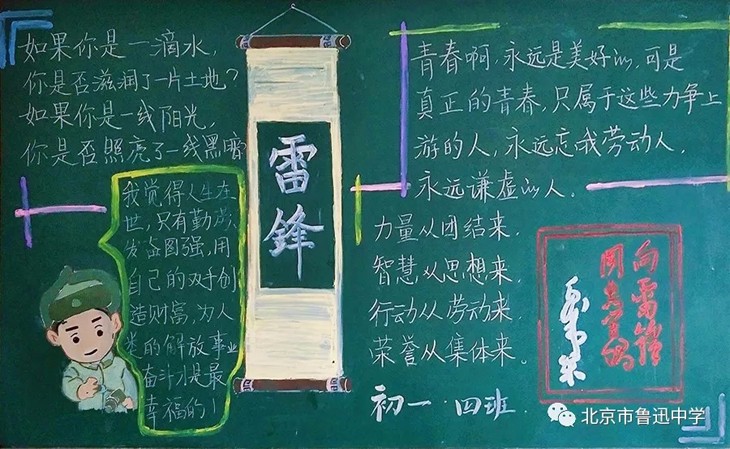 如果你是一滴水，
你是否滋润了一片土地？
如果你是一线阳光，
你是否照亮了一线黑暗
我觉得人生在
世，只有勤劳，
发奋图强，用
自己的双手创
造财富，为人
类的解放事业
奋斗才是最
幸福的！
雷鋒
青春啊，永远是美好的，可是
真正的青春，只属于这些力争上
游的人，永远忘我劳动人，
永远谦虚的人.
力量从团结来，
智慧从思想来，
行动从劳动来，
荣誉从集体来。
向雷锋
同志学习
毛泽东
初一·四班.
北京市鲁迅中学